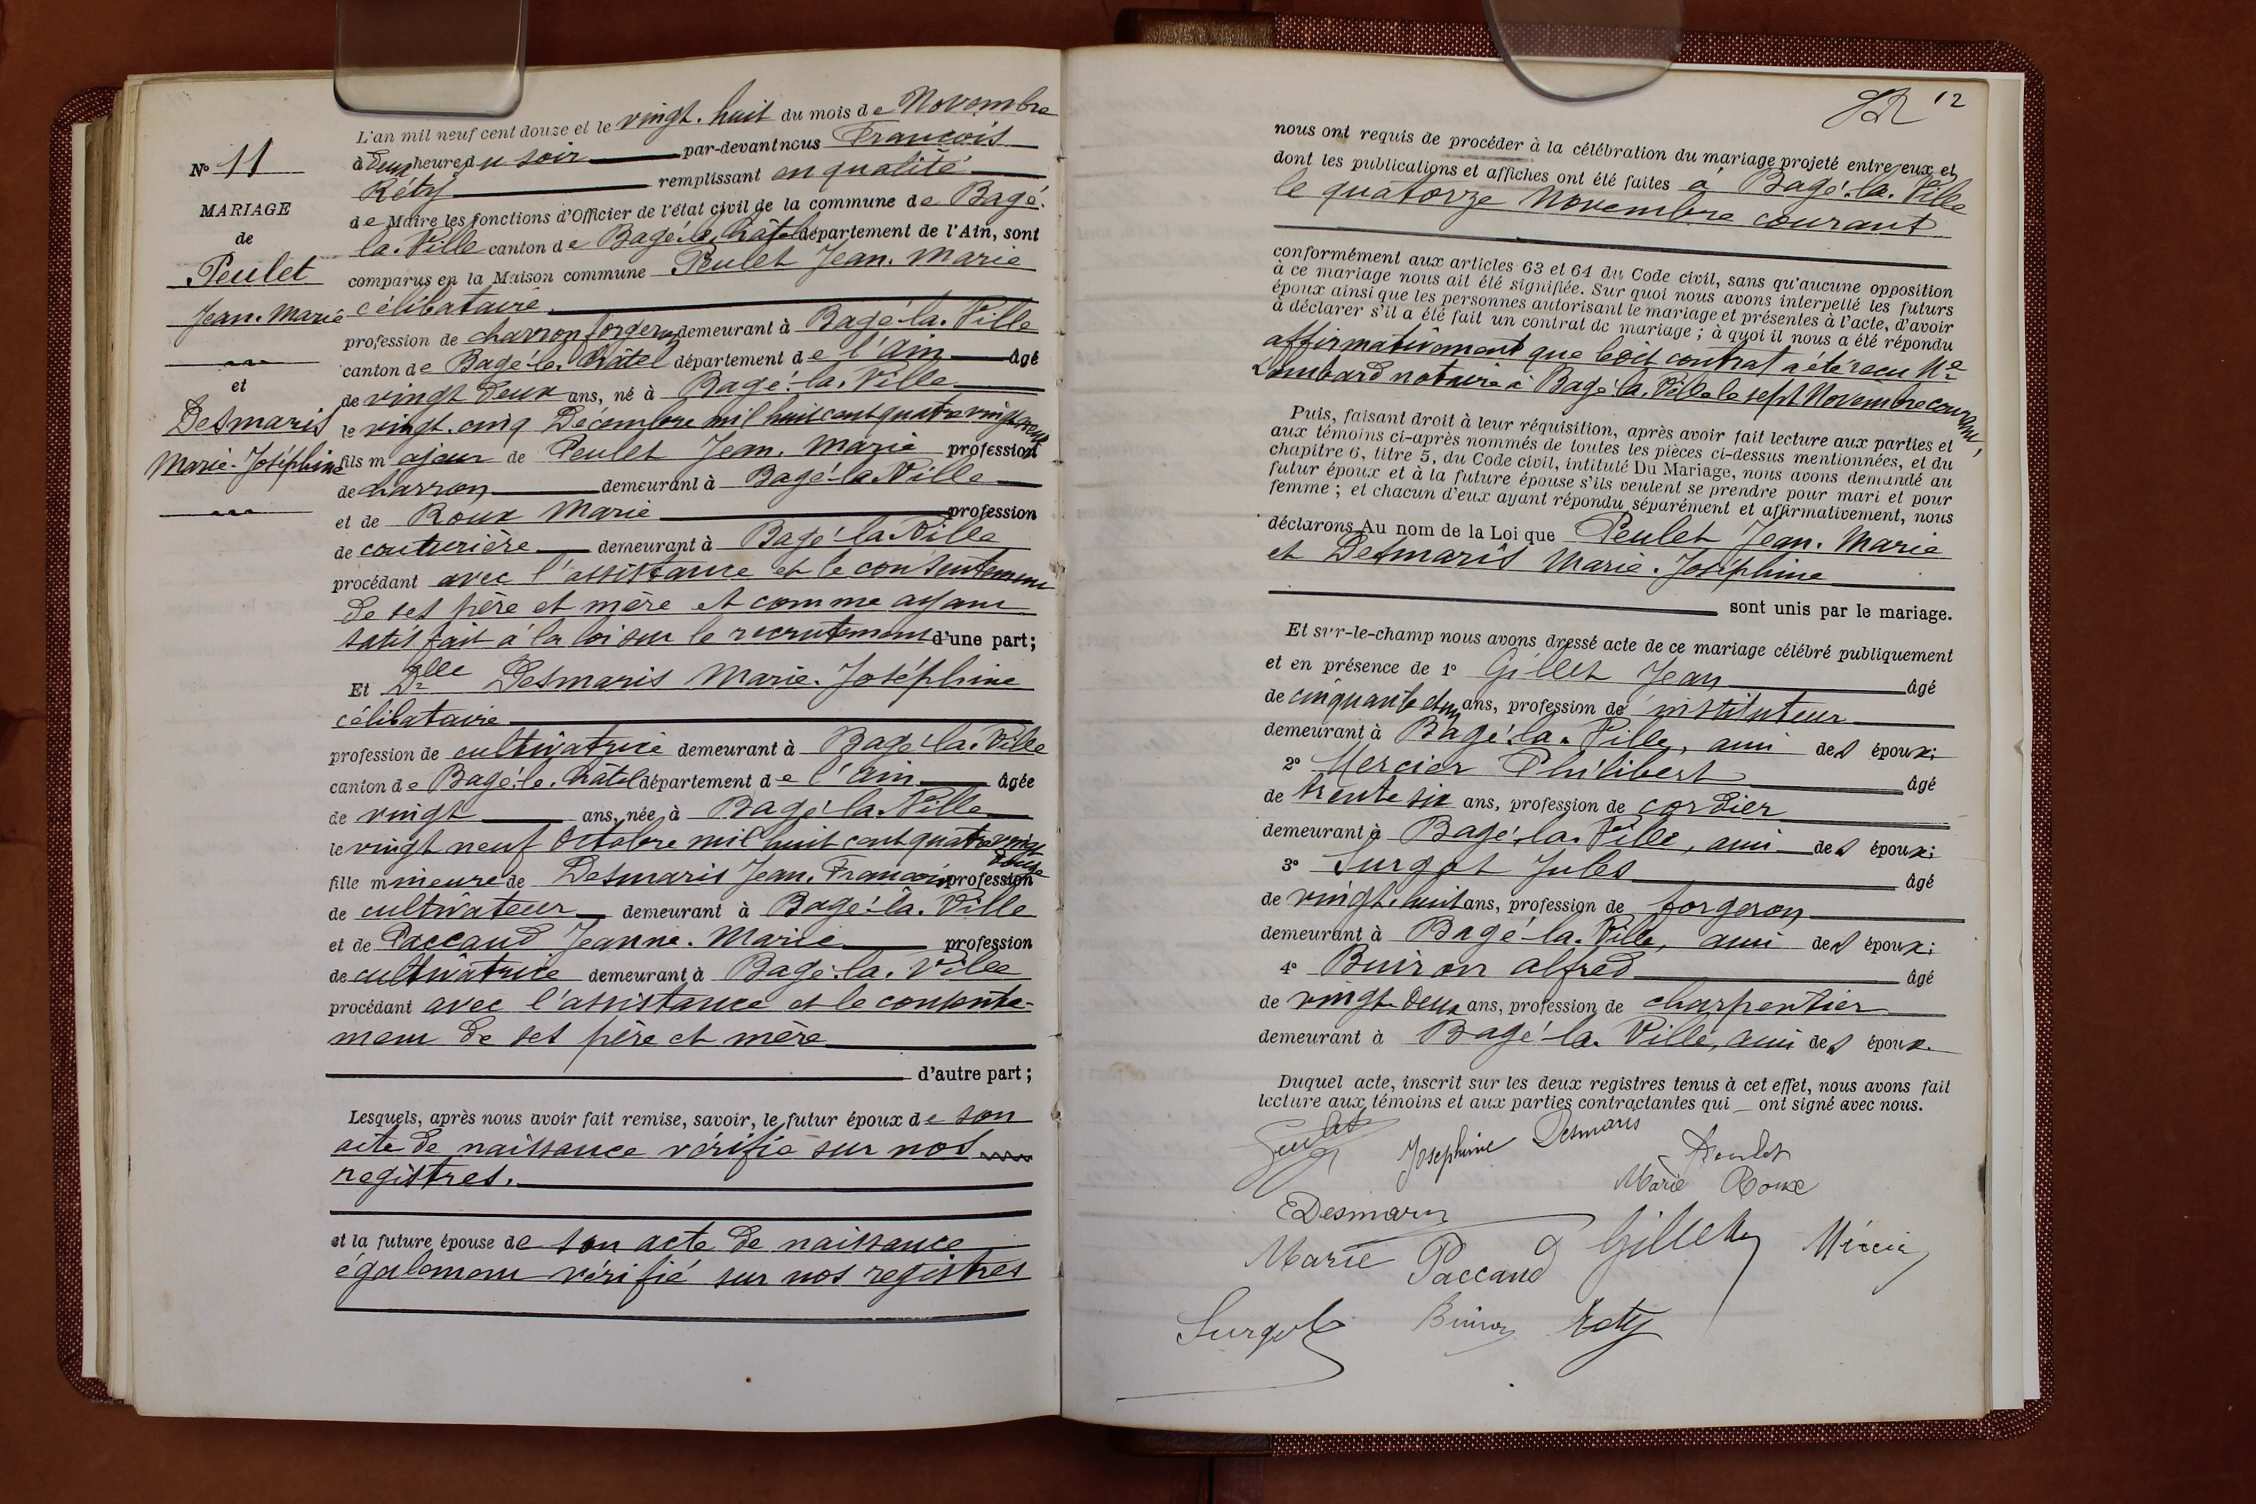 N° 11
MARIAGE
de
Peulet
Jean. Marie
et
Desmaris
Marie-Joséphine
L'an mil neuf cent douze et le vingt. huit du mois de Novembre
à deux heures du soir par-devant nous François
Réty remplissant en qualité
de Maire les fonctions d'Officier de l'état civil de la commune de Bagé.
la. Ville canton de Bagé-le-Châtel département de l'Ain, sont
comparus en la Maison commune Peulet Jean. Marie
célibataire.
profession de charron forgeron demeurant à Bagé-la. Ville
canton de Bagé-le. Châtel département de l'Ain âgé
de vingt deux ans, né à Bagé-la. Ville
le vingt. cinq Décembre mil huit cent quatre vingt neuf
fils majeur de Peulet Jean. Marie profession
de charron demeurant à Bagé-la Ville
et de Roux Marie profession
de couturière demeurant à Bagé-la Ville
procédant avec l'assistance et le consentement
de ses père et mère et comme ayant
satisfait à la loi sur le recrutement d'une part;
Et Dlle Desmaris Marie. Joséphine
célibataire
profession de cultivatrice demeurant à Bagé-la. Ville
canton de Bagé-le. Châtel département de l'Ain âgée
de vingt ans, née à Bagé la Ville
le vingt neuf Octobre mil huit cent quatre vingt
douze
fille mineure de Desmaris Jean. François profession
de cultivateur demeurant à Bagé-la. Ville
et de Paccaud Jeanne. Marie profession
de cultivatrice demeurant à Bagé. la. Ville
procédant avec l'assistance et le consente-
ment de ses père et mère
d'autre part;
Lesquels, après nous avoir fait remise, savoir, le futur époux de son
acte de naissance vérifié sur nos
registres.
et la future épouse de son acte de naissance
également vérifié sur nos registres
12
nous ont requis de procéder à la célébration du mariage projeté entre eux et
dont les publications et affiches ont été faites à Bagé-la. Ville
le quatorze Novembre courant
conformément aux articles 63 et 64 du Code civil, sans qu'aucune opposition
à ce mariage nous ait été signifiée. Sur quoi nous avons interpellé les futurs
époux ainsi que les personnes autorisant le mariage et présentes à l'acte, d'avoir
à déclarer s'il a été fait un contrat de mariage; à quoi il nous a été répondu
affirmativement que ledit contrat a été reçu Me
Lombard notaire à Bagé-la. Ville le sept Novembre courant,
Puis, faisant droit à leur réquisition, après avoir fait lecture aux parties et
aux témoins ci-après nommés de toutes les pièces ci-dessus mentionnées, et du
chapitre 6, titre 5, du Code civil, intitulé Du Mariage, nous avons demandé au
futur époux et à la future épouse s'ils veulent se prendre pour mari et pour
femme; et chacun d'eux ayant répondu séparément et affirmativement, nous
déclarons Au nom de la Loi que Peulet Jean. Marie
et Desmaris Marie. Joséphine
sont unis par le mariage.
Et sur-le-champ nous avons dressé acte de ce mariage célébré publiquement
et en présence de 1° Gillet Jean âgé
de cinquante et un ans, profession de instituteur
demeurant à Bagé-la. Ville, ami des époux;
2° Mercier Philibert âgé
de trente six ans, profession de cordier
demeurant à Bagé-la. Ville, ami des époux;
3° Surgot Jules âgé
de vingt. huit ans, profession de forgeron
demeurant à Bagé-la. Ville, ami des époux;
4° Buiron Alfred âgé
de vingt-deux ans, profession de charpentier
demeurant à Bagé-la. Ville, ami des époux.
Duquel acte, inscrit sur les deux registres tenus à cet effet, nous avons fait
lecture aux témoins et aux parties contractantes qui ont signé avec nous.
Peulet Joséphine Desmaris Peulet
Marie Roux
Desmaris
Marie Paccaud Gillet Mercier
Surgot Buiron Réty